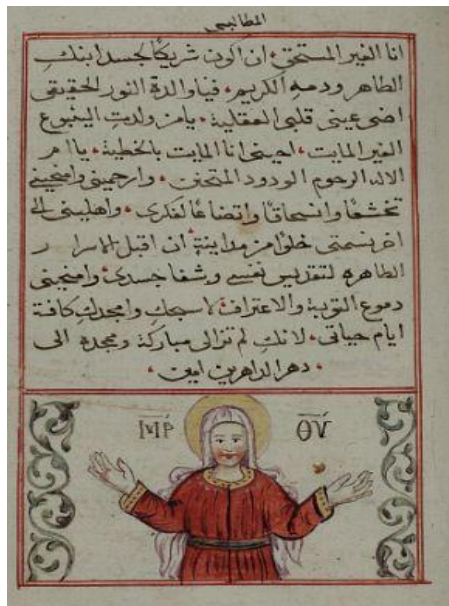 المطالبسى
انا الغير المستحق، ان اكون شريكًا لجسد ابنكِ
الطاهر ودمهِ الكريم، فيا والدة النور الحقيقى
اضى عينى قلبى العقلية، يامن ولدتِ الينبوع
الغير المايت، احيينى انا المايت بالخطية، ياام
الاله الرحوم الودود المتحنن، وارحمينى وامنحينى
تخشعًا وانسحاقًا واتضاعًا لفكرى، واهلينى الى
اخر نسمتى خلوًا من مداينةٍ ان اقبل الاسرار
الطاهره لتقديس نفسى وشفا جسدى وامنحينى
دموع التوبة والاعتراف، لاسبحكِ وامجدكِ كافة
ايام حياتى، لانكِ لم تزالى مباركة وممجده الى
دهر الداهرين امين،
ΜΡ ΘΥ